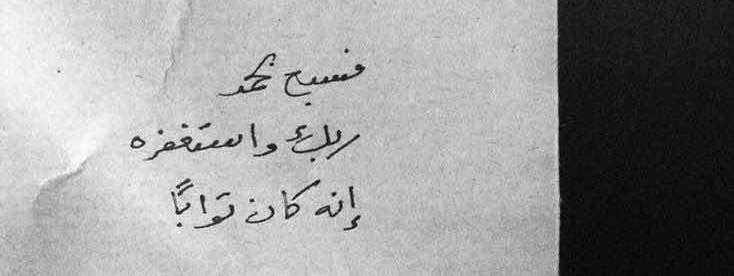 فسبح بحمد
ربك واستغفره
إنه كان توابًا